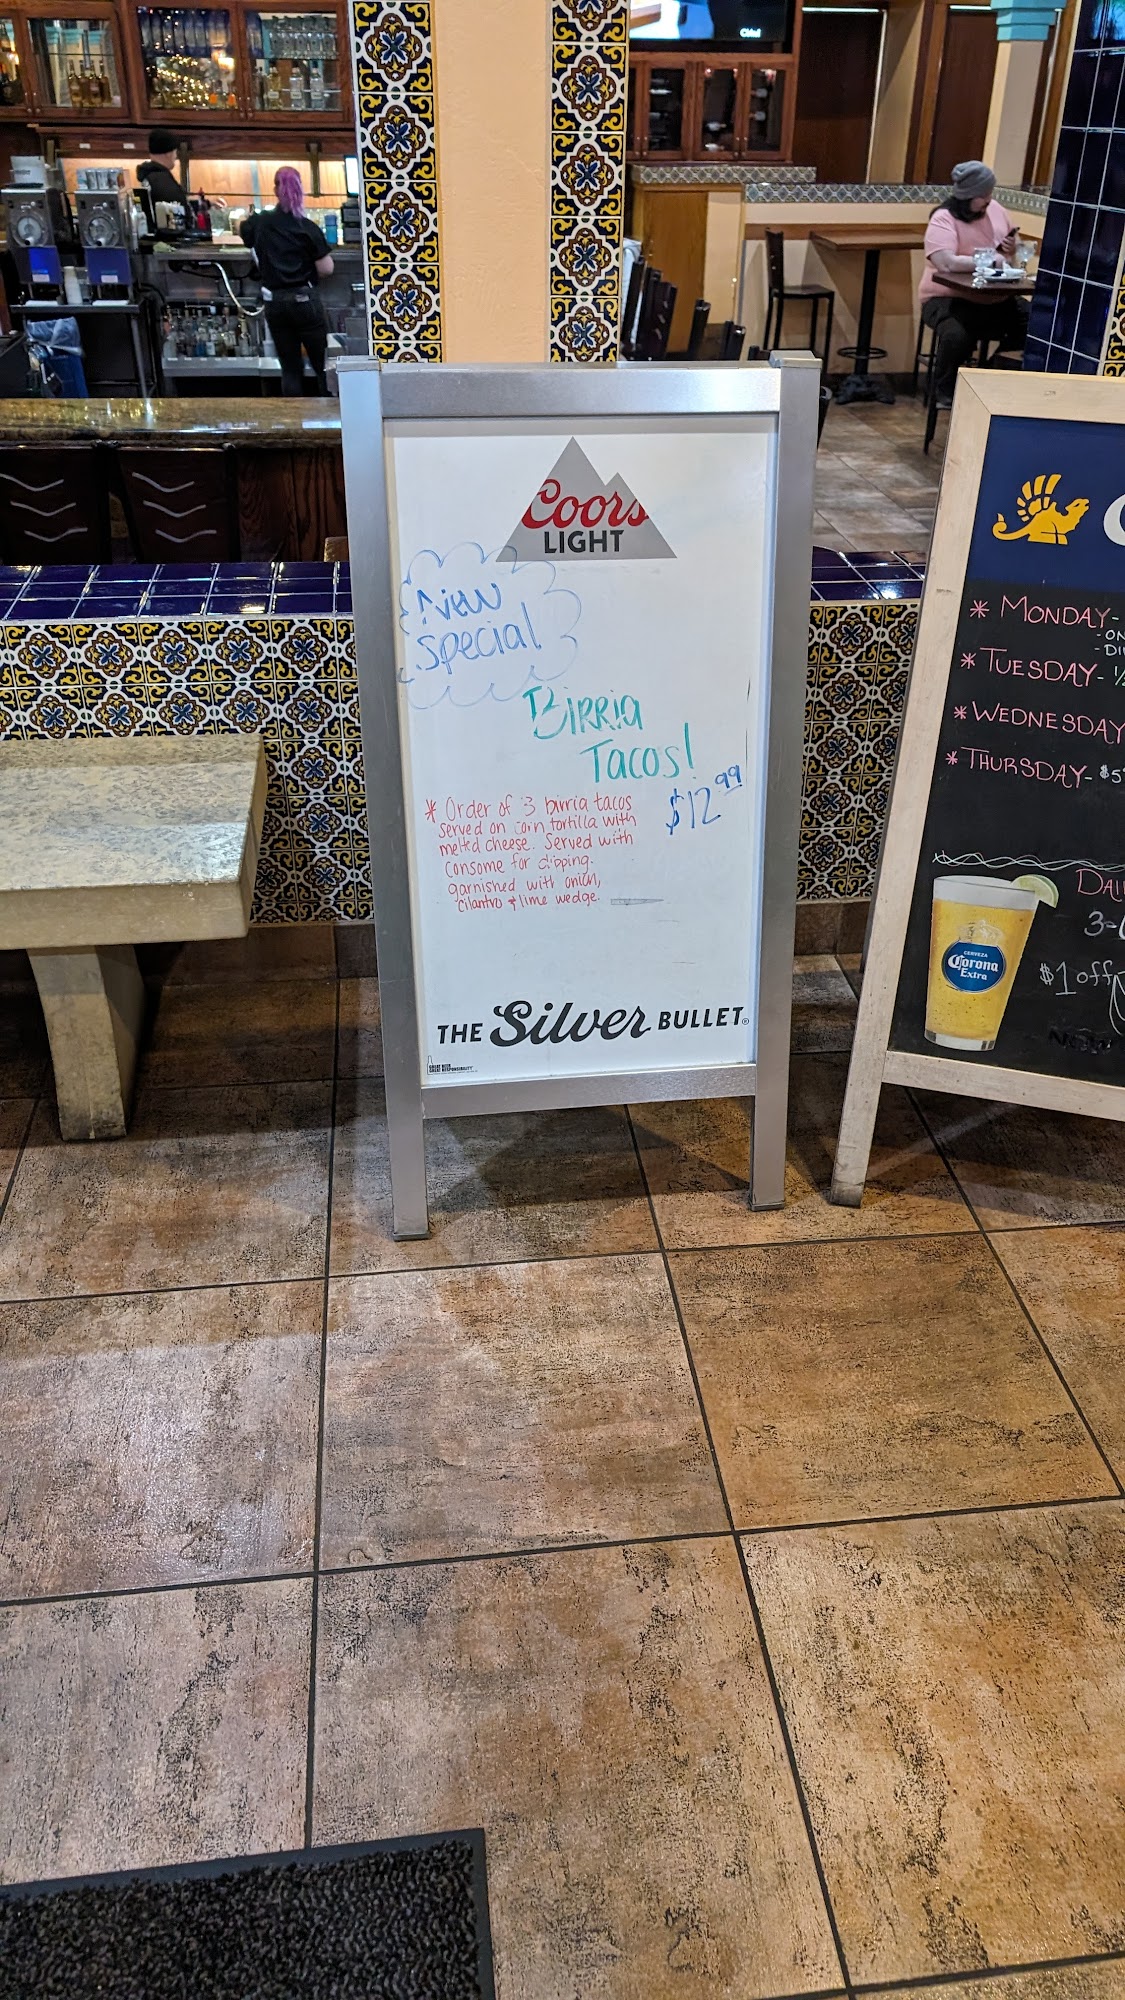 Coors
LIGHT
New
Special
Birria
Tacos!
$12 99
* Order of 3 birria tacos
served on corn tortilla with
melted cheese. Served with
consome for dipping.
garnished with onion,
cilantro + lime wedge.
THE Silver BULLET®
GREAT BEER
GREAT RESPONSIBILITY
* MONDAY-
* TUESDAY-
* WEDNESDAY
* THURSDAY- $5
3-
$1 off
CERVEZA
Corona
Extra